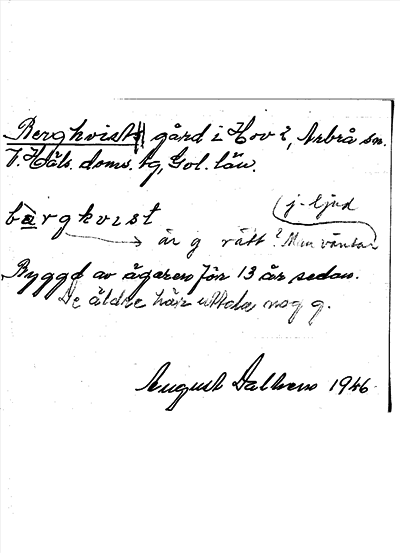 Bergkvists gård i Hov 2, Arbrå sn.
V. Häls. doms. tg, Gvl. län.
bärgkvist
(j-ljud
är g rätt? Man väntar
Byggd av ägaren för 13 år sedan.
De äldre här uttala nog g.
August Dallven 1946